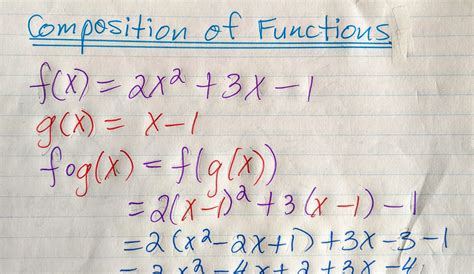 Composition of Functions
f(x) = 2x² + 3x - 1
g(x) = x - 1
fog(x) = f(g(x))
= 2(x-1)² + 3(x-1) - 1
= 2(x²-2x+1) + 3x - 3 - 1
= 2x² - 4x + 2 + 3x - 4